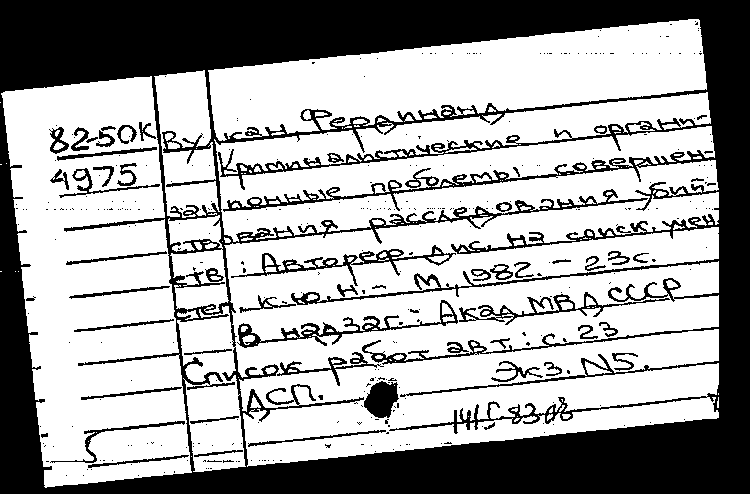 82-50к Вулкан, Фердинанд.
4975 Криминалистические и органи-
зационные проблемы совершен-
ствования расследования убий-
ств: Автореф. дис. на соиск. учен.
степ. к.ю.н. - М., 1982. - 23с.
В надзаг.: Акад. МВД СССР
Список работ авт.: с. 23
ДСП. Экз. N5.